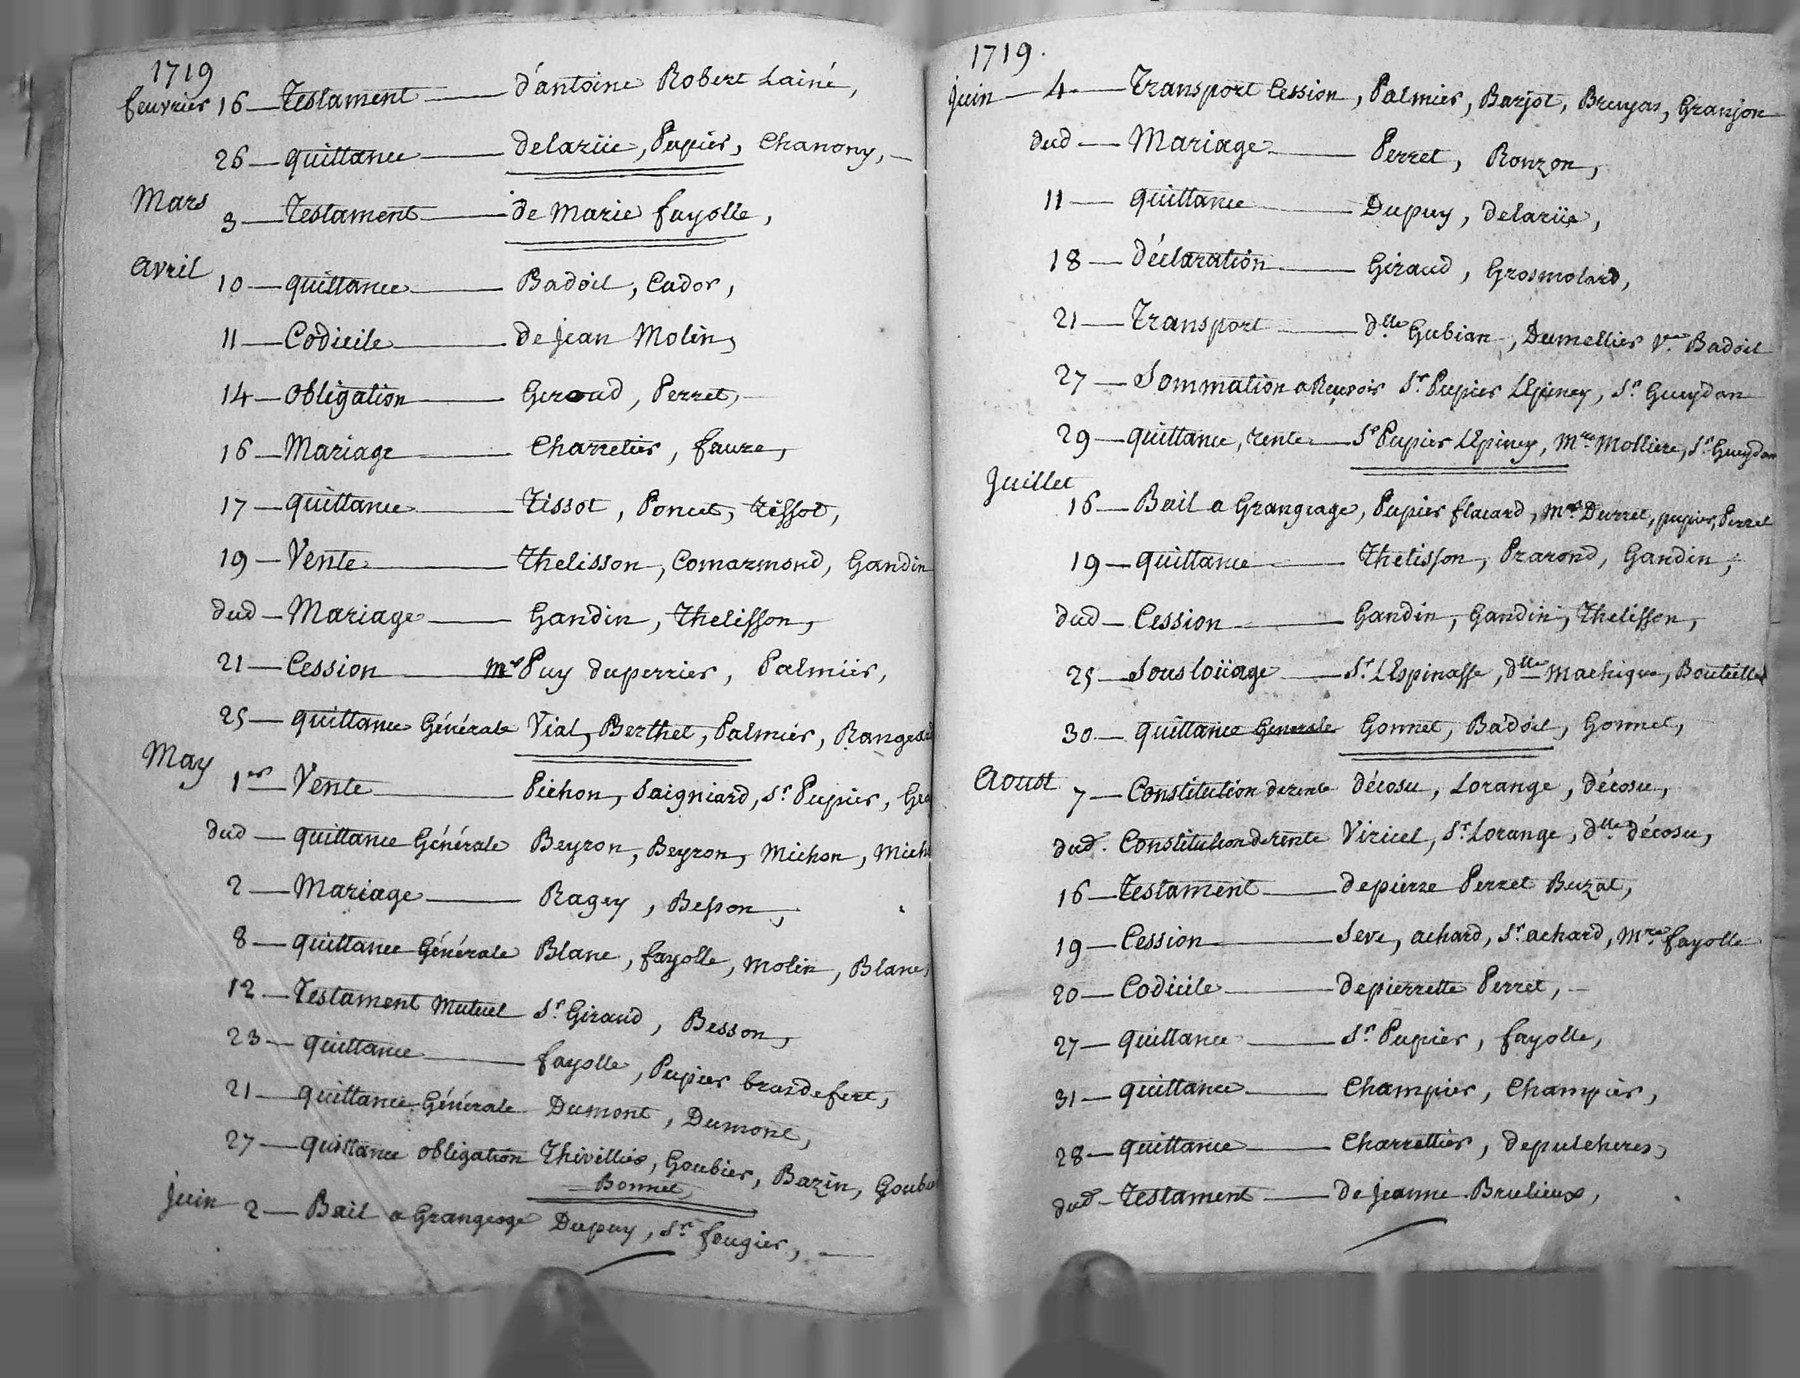 1719
feuvrier 16 — Testament — d'antoine Robert Lainé,
26 — quittance — delarüe, Pupier, Chanony, —
Mars 3 — Testament — de Marie fayolle,
Avril 10 — quittance — Badoil, Cador,
11 — Codicile — de jean Molin,
14 — obligation — Geroud, Perret,
16 — Mariage — Charretier, faure,
17 — quittance — Tissot, Poncet, Tissot,
19 — Vente — Thelisson, Comarmond, Gandin
dud — Mariage — Gandin, Thelisson,
21 — Cession — Mre Puy duperrier, Palmier,
25 — quittance Générale Vial, Berthet, Palmier, Rangeard
May 1er — Vente — Pichon, Saigniard, Sr Pupier,
dud — quittance Générale Beyron, Beyron, Michon,
2 — Mariage — Ragey, Besson,
8 — quittance Générale Blanc, fayolle, Molin, Blanc,
12 — Testament Mutuel Sr Giraud, Besson,
23 — quittance — fayolle, Pupier brasdefert,
21 — quittance Générale Dumont, Dumont,
27 — quittance obligation Thivillier, Goubier, Bazin,
Bonnet,
Juin 2 — Bail a Grangeage Dupuy, Sr fougier, —
1719.
Juin — 4 — Transport Cession, Palmier, Barjot, Bruyas, Granjon
dud — Mariage — Perret, Ronzon,
11 — quittance — Dupuy, delarüe,
18 — déclaration — Giraud, Grosmolard,
21 — Transport — dlle Gubian, Dumellier Vve Badoil
27 — Sommation a Reçevoir Sr Pupier LEpiney, Sr Gueydan
29 — quittance, rente — Sr Pupier LEpiney, Mre Molliere, Sr Gueydan
Juillet 16 — Bail a Grangeage, Pupier flacard, Mre Durret, pupier, Perret
19 — quittance — Thelisson, Prarond, Gandin,
dud — Cession — Gandin, Gandin, Thelisson,
25 — Sousloüage — Sr LEspinasse, dlle Machique,
30 — quittance Generale Gonnet, Badoil, Gonnet,
Aoust 7 — Constitution de rente décosu, Lorange, décosu,
dud. Constitution de rente Viricel, Sr Lorange, dlle décosu,
16 — Testament — de pierre Perret Buzat,
19 — Cession — Seve, achard, Sr achard, Mre fayolle
20 — Codicile — de pierrette Perret, —
27 — quittance — Sr Pupier, fayolle,
31 — quittance — Champier, Champier,
28 — quittance — Charrettier, depulcheres,
dud — Testament — de jeanne Brulieux,